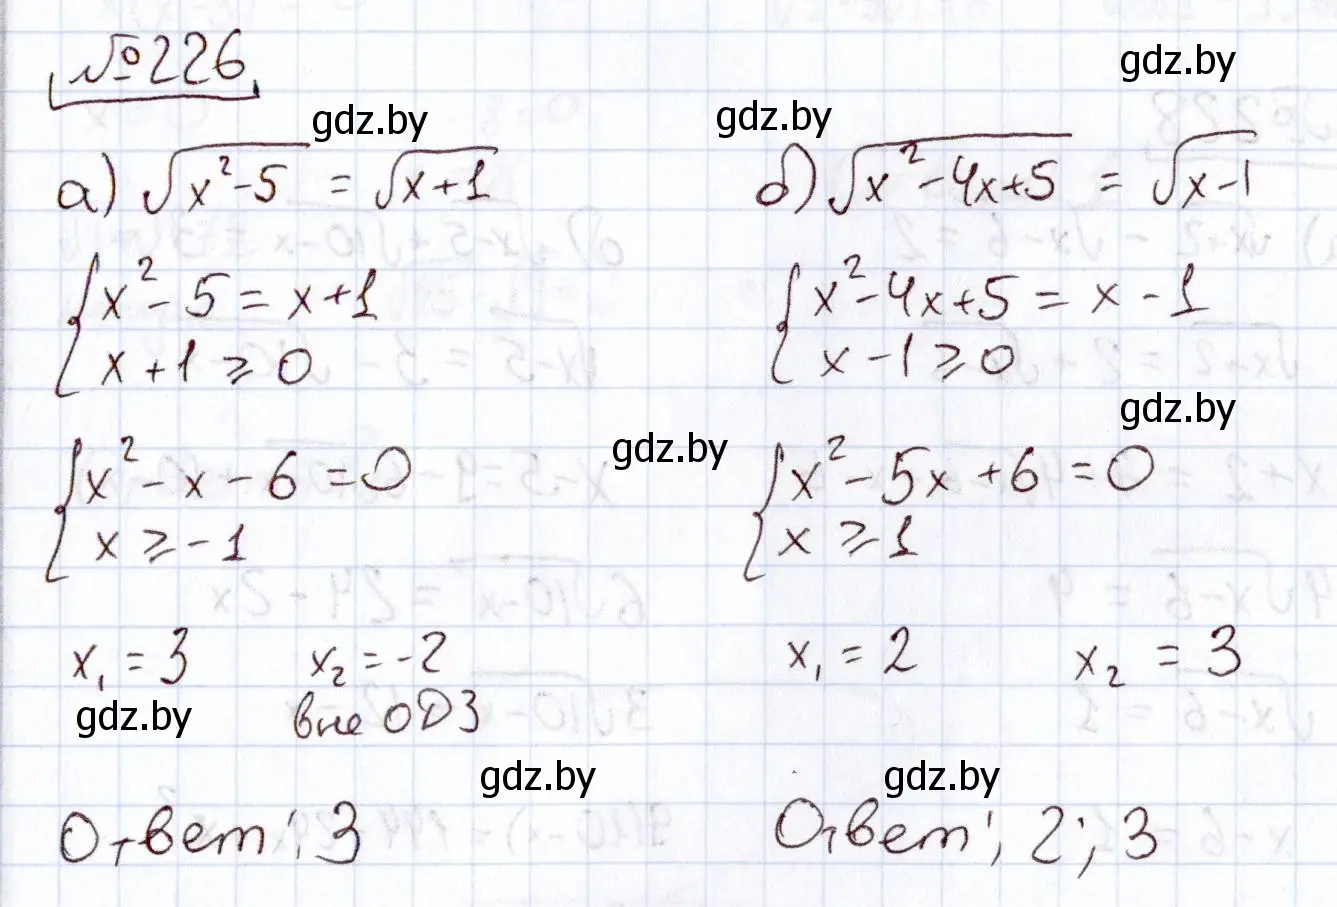 №226
gdz.by
gdz.by
gdz.by
а) √(x²-5) = √(x+1)
{ x²-5 = x+1
x+1 ⩾ 0
{ x²-x-6 = 0
x ⩾ -1
x₁ = 3 x₂ = -2
gdz.by
вне ОДЗ
gdz.by
Ответ: 3
б) √(x²-4x+5) = √(x-1)
{ x²-4x+5 = x-1
x-1 ⩾ 0
gdz.by
gdz.by
{ x²-5x+6 = 0
x ⩾ 1
x₁ = 2 x₂ = 3
gdz.by
Ответ: 2; 3